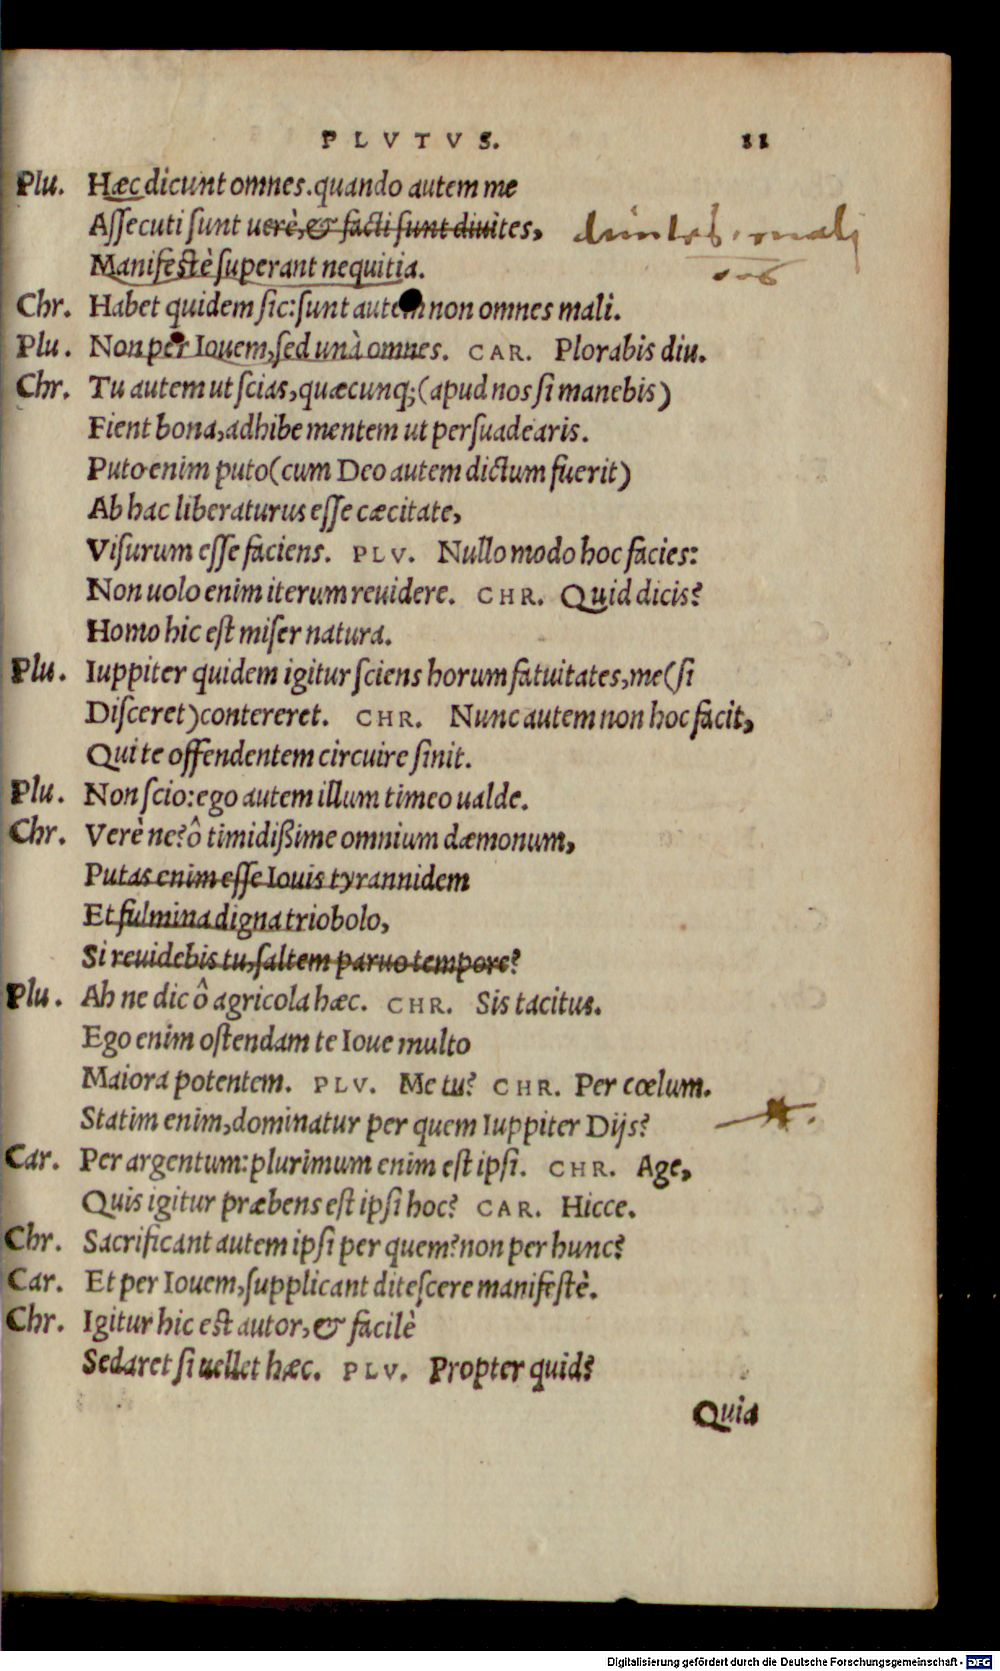 PLVTVS. 11
Plu. Hæc dicunt omnes.quando autem me
Assecuti sunt uerè,& facti sunt diuites, diuites mali
Manifestè superant nequitia.
Chr. Habet quidem sic:sunt autem non omnes mali.
Plu. Non per Iouem,sed unà omnes. CAR. Plorabis diu.
Chr. Tu autem ut scias,quæcunq;(apud nos si manebis)
Fient bona,adhibe mentem ut persuadearis.
Puto enim puto(cum Deo autem dictum fuerit)
Ab hac liberaturus esse cæcitate,
Visurum esse faciens. PLV. Nullo modo hoc facies:
Non uolo enim iterum reuidere. CHR. Quid dicis?
Homo hic est miser natura.
Plu. Iuppiter quidem igitur sciens horum fatuitates,me(si
Disceret)contereret. CHR. Nunc autem non hoc facit,
Qui te offendentem circuire sinit.
Plu. Non scio:ego autem illum timeo ualde.
Chr. Verè ne?ô timidißime omnium dæmonum,
Putas enim esse Iouis tyrannidem
Et fulmina digna triobolo,
Si reuidebis tu,saltem paruo tempore?
Plu. Ah ne dic ô agricola hæc. CHR. Sis tacitus.
Ego enim ostendam te Ioue multo
Maiora potentem. PLV. Me tu? CHR. Per cœlum.
Statim enim,dominatur per quem Iuppiter Dijs?
Car. Per argentum:plurimum enim est ipsi. CHR. Age,
Quis igitur præbens est ipsi hoc? CAR. Hicce.
Chr. Sacrificant autem ipsi per quem?non per hunc?
Car. Et per Iouem,supplicant ditescere manifestè.
Chr. Igitur hic est autor,& facilè
Sedaret si uellet hæc. PLV. Propter quid?
Quia
Digitalisierung gefördert durch die Deutsche Forschungsgemeinschaft - DFG